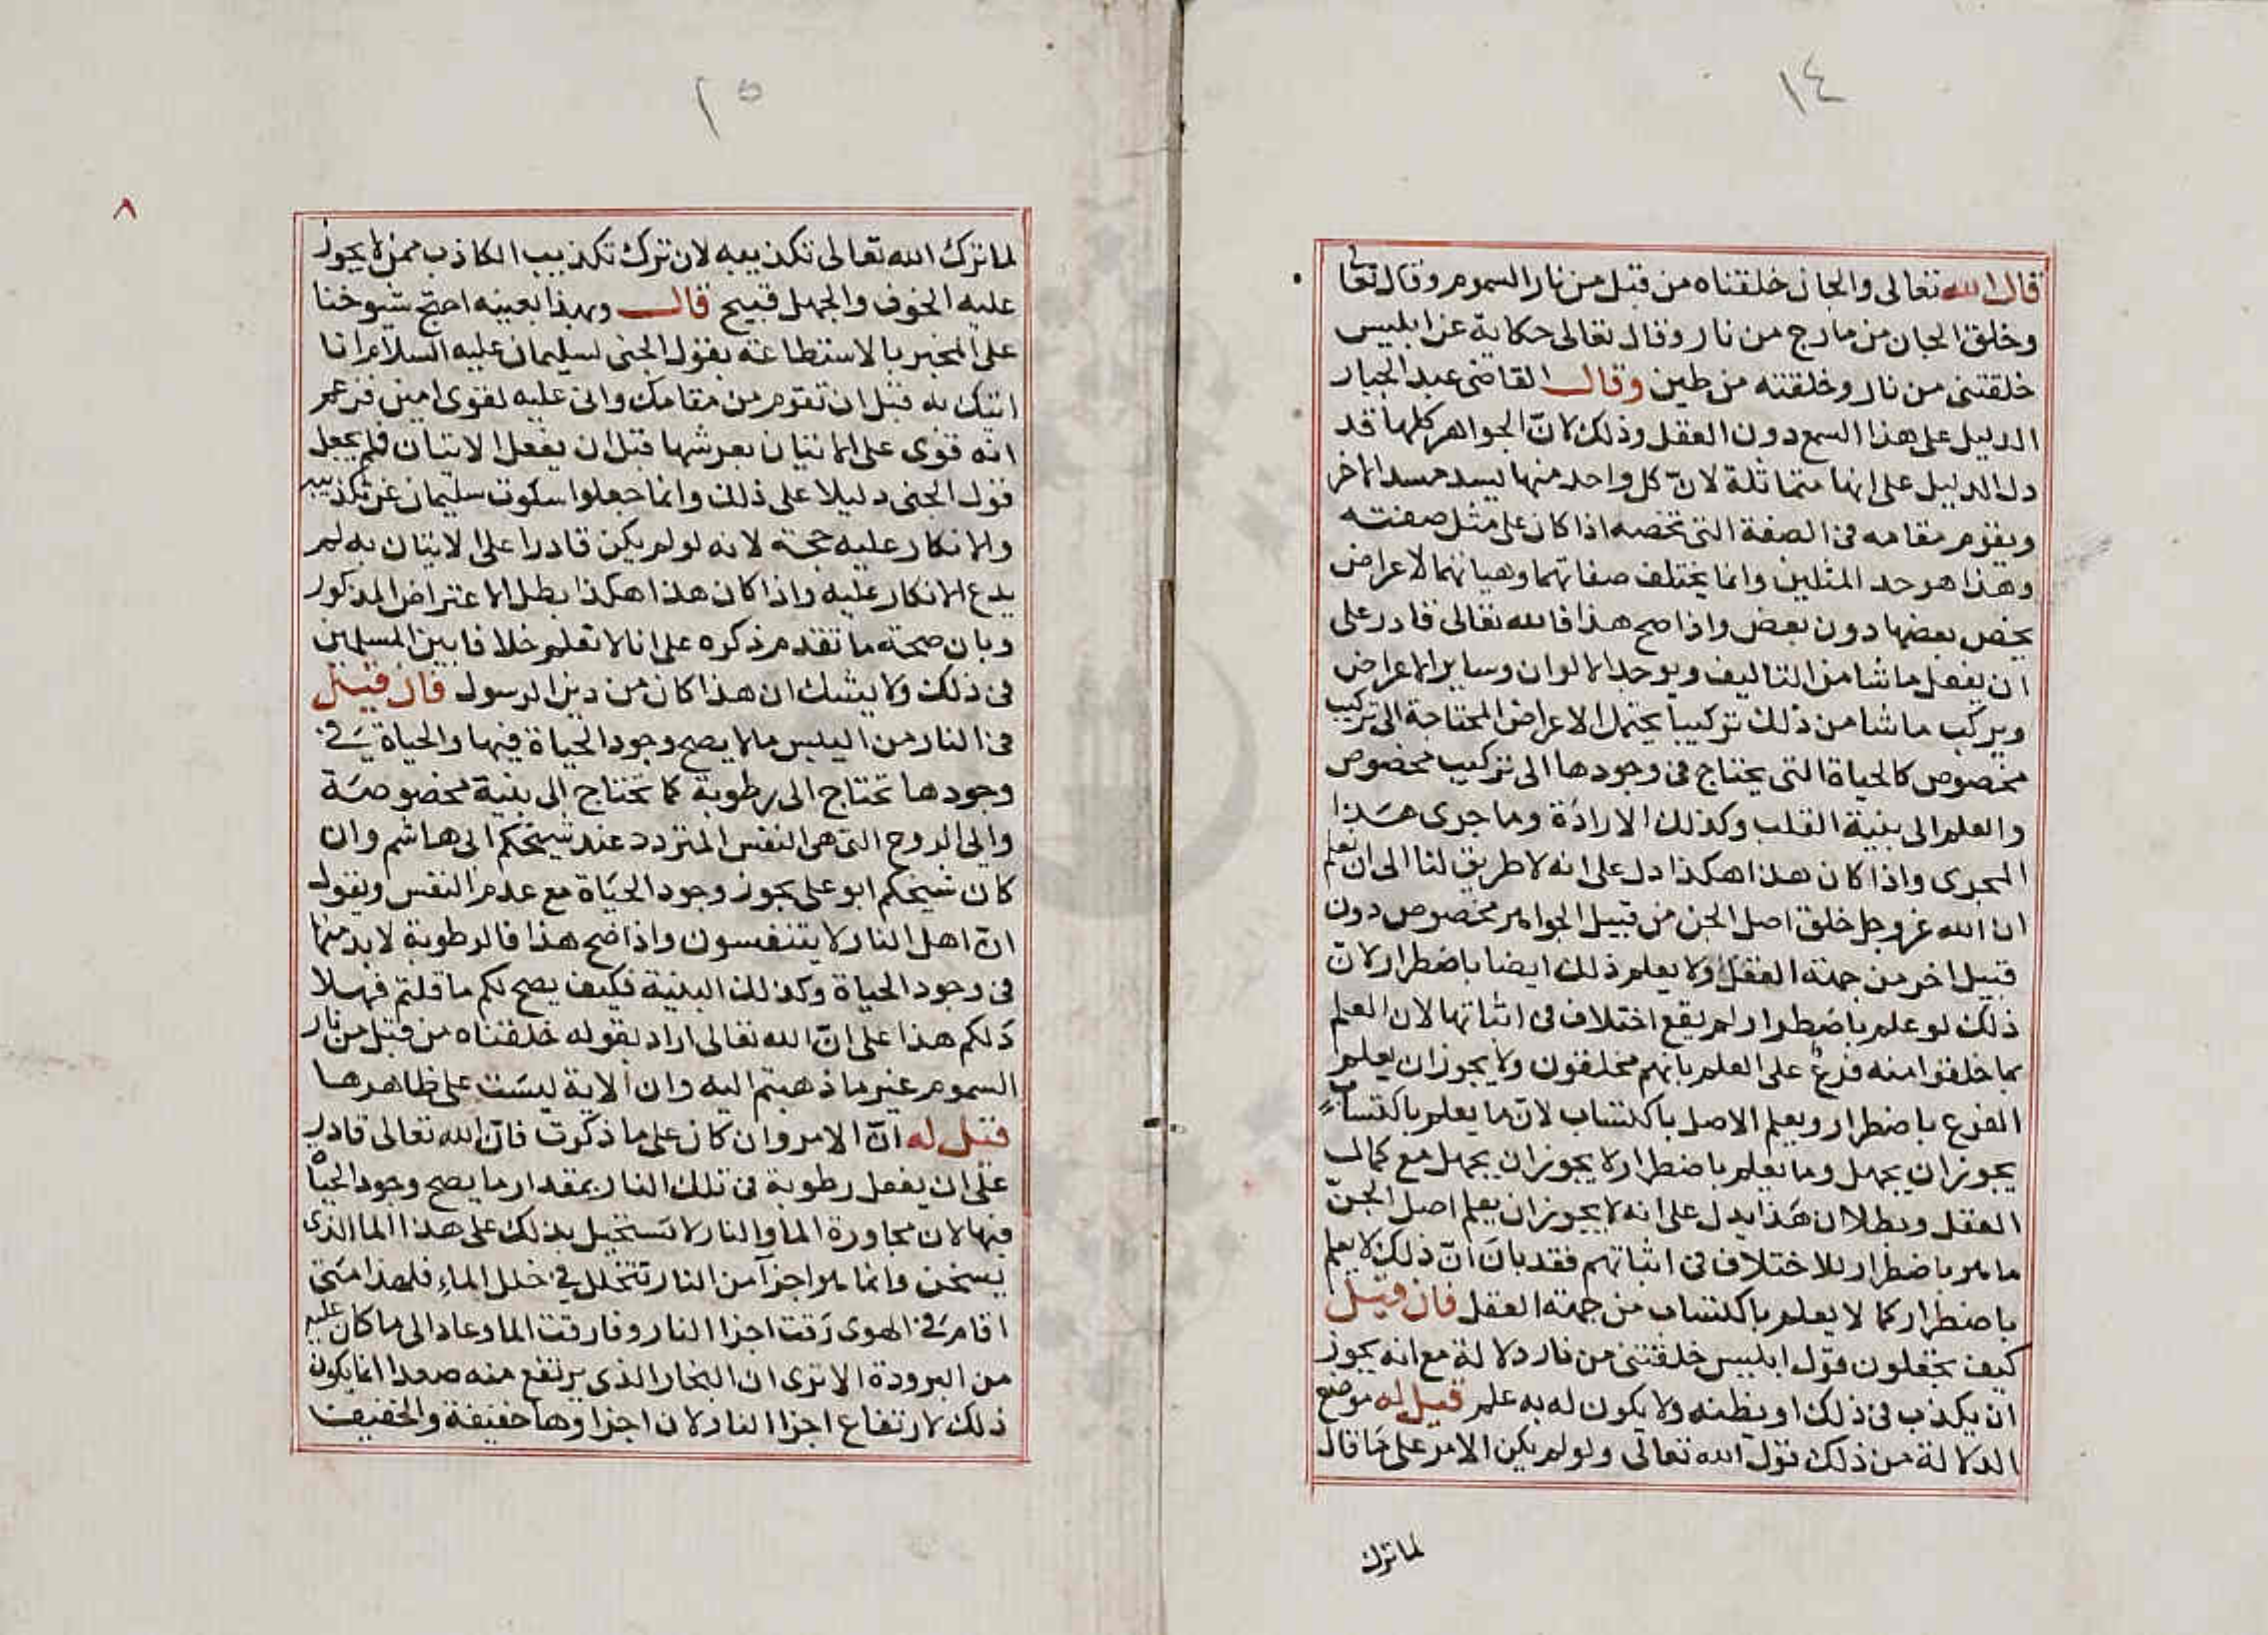 ١٤
قال الله تعالى والجان خلقناه من قبل من نار السموم وقال تعالى
وخلق الجان من مارج من نار وقال تعالى حكاية عن ابليس
خلقتني من نار وخلقته من طين وقال القاضى عبد الجبار
الدليل على هذا السمع دون العقل وذلك لانّ الجواهر كلها قد
دل الدليل على انها متماثلة لانّ كل واحد منها يسد مسد الاخر
ويقوم مقامه فى الصفة التى تخصه اذا كان على مثل صفته
وهذا هو حد المثلين وانما يختلف صفاتهما وهياتهما لاعراض
يخص بعضها دون بعض واذا صح هذا فالله تعالى قادر على
ان يفعل ما شا من التاليف ويوجد الالوان وساير الاعراض
ويركب ما شا من ذلك تركيبا يحتمل الاعراض المحتاجة الى تركيب
مخصوص كالحياة التى يحتاج فى وجودها الى تركيب مخصوص
والعلم الى بنية القلب وكذلك الارادة وما جرى هذا
المجرى واذا كان هذا هكذا دل على انه لا طريق لنا الى ان نعلم
ان الله عز وجل خلق اصل الجن من قبيل الجواهر مخصوص دون
قبيل اخر من جهة العقل ولا يعلم ذلك ايضا باضطرار لانّ
ذلك لو علم باضطرار لم يقع اختلاف فى اثباتها لان العلم
بما خلقوا منه فرعٌ على العلم بانهم مخلقون ولا يجوز ان يعلم
الفرع باضطرار ويعلم الاصل باكتساب لانّ ما يعلم باكتساب
يجوز ان يجهل وما يعلم باضطرار لا يجوز ان يجهل مع كمال
العقل وبطلان هذا يدل على انه لا يجوز ان يعلم اصل الجنّ
ما هو باضطرار للاختلاف فى اثباتهم فقد بان انّ ذلك لا يعلم
باضطرار كما لا يعلم باكتساب من جهة العقل فان قيل
كيف تجعلون قول ابليس خلقتنى من نار دلالة مع انه يجوز
ان يكذب فى ذلك او يظنه ولا يكون له به علم قيل له موضع
الدلالة من ذلك قول الله تعالى ولو لم يكن الامر على ما قال
لما ترك
١٥
٨
لما ترك الله تعالى تكذيبه لان ترك تكذيب الكاذب ممن لا يجوز
عليه الخوف والجهل قبيح قال وبهذا بعينه احتج شيوخنا
على المخبر بالاستطاعة بقول الجنى لسليمان عليه السلام انا
اتيك به قبل ان تقوم من مقامك وانى عليه لقوى امين فزعم
انه قوى على الاتيان بعرشها قبل ان يفعل الاتيان فلم يجعل
قول الجنى دليلا على ذلك وانما جعلوا سكوت سليمان عن تكذيبه
والانكار عليه حجة لانه لو لم يكن قادرا على الاتيان به لم
يدع الانكار عليه واذا كان هذا هكذا بطل الاعتراض المذكور
وبان صحة ما تقدم ذكره على انا لا نعلم خلافا بين المسلمين
فى ذلك ولا يشك ان هذا كان من دين الرسول فان قيل
فى النار من اليبس ما لا يصح وجود الحياة فيها والحياة فى
وجودها تحتاج الى رطوبة كما تحتاج الى بنية مخصوصة
والى الروح التى هى النفس المتردد عند شيخكم ابى هاشم وان
كان شيخكم ابو على يجوز وجود الحياة مع عدم النفس ويقول
انّ اهل النار لا يتنفسون واذا صح هذا فالرطوبة لا بد منها
فى وجود الحياة وكذلك البنية فكيف يصح لكم ما قلتم فهلا
دلكم هذا على انّ الله تعالى اراد بقوله خلقناه من قبل من نار
السموم غير ما ذهبتم اليه وان الاية ليست على ظاهرها
قيل له انّ الامر وان كان على ما ذكرت فانّ الله تعالى قادر
على ان يفعل رطوبة فى تلك النار بمقدار ما يصح وجود الحياة
فيها لان مجاورة الما والنار لا تستحيل بذلك على هذا الما الذى
يسخن وانما هو اجزآ من النار تتخلل فى خلل الماءِ فلهذا متى
اقام فى الهوى رَقت اجزا النار وفارقت الما وعاد الى ما كان عليه
من البرودة الا ترى ان البخار الذى يرتفع منه صعدا انما يكون
ذلك لارتفاع اجزا النار لان اجزاوها خفيفة والخفيف